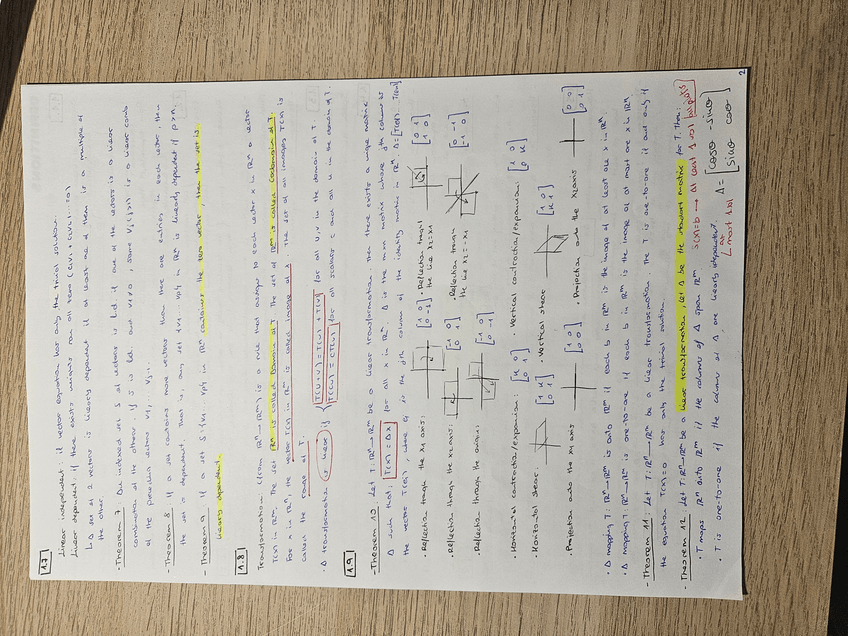 1.7
Linear independent: if vector equation has only the trivial solution.
Linear dependent: if there exists weights non all zero (c1v1 + c2v2 + ... = 0)
↳ A set of 2 vectors is linearly dependent if at least one of them is a multiple of
the other.
- Theorem 7 An indexed set S of vectors is l.d if one of the vectors is a linear
combination of the others. If S is l.d and v1≠0, some vj (j>1) is a linear comb
of the preceding vectors v1, ... vj-1.
- Theorem 8 If a set contains more vectors than there are entries in each vector, then
the set is dependent. That is, any set {v1 ... vp} in ℝⁿ is linearly dependent if p>n.
- Theorem 9 If a set S = {v1 ... vp} in ℝⁿ contains the zero vector, then the set is
linearly dependent.
1.8
Transformation (from ℝⁿ→ℝᵐ) is a rule that assigns to each vector x in ℝⁿ a vector
T(x) in ℝᵐ. The set ℝⁿ is called Domain of T. The set of ℝᵐ is called Codomain of T.
For x in ℝⁿ, the vector T(x) in ℝᵐ is called image of x. The set of all images T(x) is
called the range of T.
· A transformation is linear if { T(u+v) = T(u) + T(v) for all u,v in the domain of T.
T(cu) = cT(u) for all scalars c and all u in the domain of T.
1.9
- Theorem 10 Let T: ℝⁿ→ℝᵐ be a linear transformation. Then there exists a unique matrix
A such that: T(x) = Ax for all x in ℝⁿ. A is the m×n matrix whose jth column is
the vector T(ej), where ej is the jth column of the identity matrix in ℝⁿ A = [T(e1) .. T(en)]
· Reflection through the x1 axis: [1 0 0 -1] · Reflection trough the line x2=x1 [0 1 1 0]
· Reflection through the x2 axis: [-1 0 0 1] · Reflection trough the line x2=-x1 [0 -1 -1 0]
· Reflection through the origin: [-1 0 0 -1]
· Horizontal contraction/expansion: [k 0 0 1] · Vertical contraction/expansion: [1 0 0 k]
· Horizontal shear: [1 k 0 1] · Vertical shear [1 0 k 1]
· Projection onto the x1 axis [1 0 0 0] · Projection onto the x2 axis [0 0 0 1]
· A mapping T: ℝⁿ→ℝᵐ is onto ℝᵐ if each b in ℝᵐ is the image of at least one x in ℝⁿ.
· A mapping T: ℝⁿ→ℝᵐ is one-to-one if each b in ℝᵐ is the image of at most one x in ℝⁿ.
- Theorem 11: Let T: ℝⁿ→ℝᵐ be a linear transformation. The T is one-to-one if and only if
the equation T(x)=0 has only the trivial solution.
- Theorem 12 Let T: ℝⁿ→ℝᵐ be a linear transformation, let A be the standart matrix for T. Then:
· T maps ℝⁿ onto ℝᵐ if the columns of A span ℝᵐ
· T is one-to-one if the columns of A are linearly independent.
S(x)=b → at least 1 sol
↳ most 1 sol
A = [cosθ -sinθ sinθ cosθ]
2